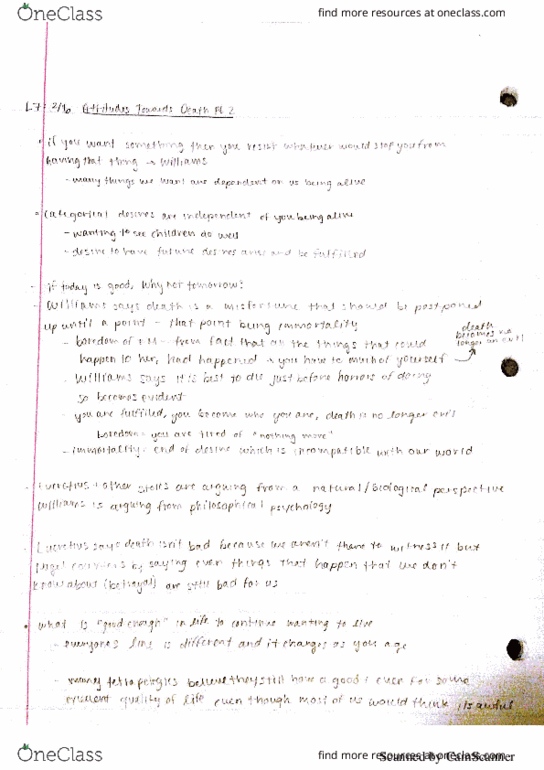 OneClass
find more resources at oneclass.com
L7: 2/16 Attitudes Towards Death Pt 2
if you want something then you resist whatever would stop you from
having that thing → Williams
- many things we want are dependent on us being alive
Categorical desires are independent of you being alive
- wanting to see children do well
- desire to have future desires arise and be fulfilled
- if today is good, why not tomorrow?
- Williams says death is a misfortune that should be postponed
up until a point - that point being immortality
death
becomes no
longer an evil
- boredom of EM - from fact that all the things that could
happen to her, had happened → you have to yourself
- Williams says it is best to die just before horrors of doing
so becomes evident
you are fulfilled, you become who you are, death is no longer evil
boredom → you are tired of "nothing more"
- immortality: end of desire which is incompatible with our world
- Lucretius + other are arguing from a natural/biological perspective
Williams is arguing from philosophical psychology
- Lucretius says death isn't bad because we aren't there to witness it but
Nagel counters by saying even things that happen that we don't
know about (betrayal) are still bad for us
• what is "good enough" in life to continue wanting to live
- everyone's line is different and it changes as you age
- many believe they still have a good / even for some
quality of life even though most of us would think its awful
OneClass
find more resources at oneclass.com
Scanned by CamScanner